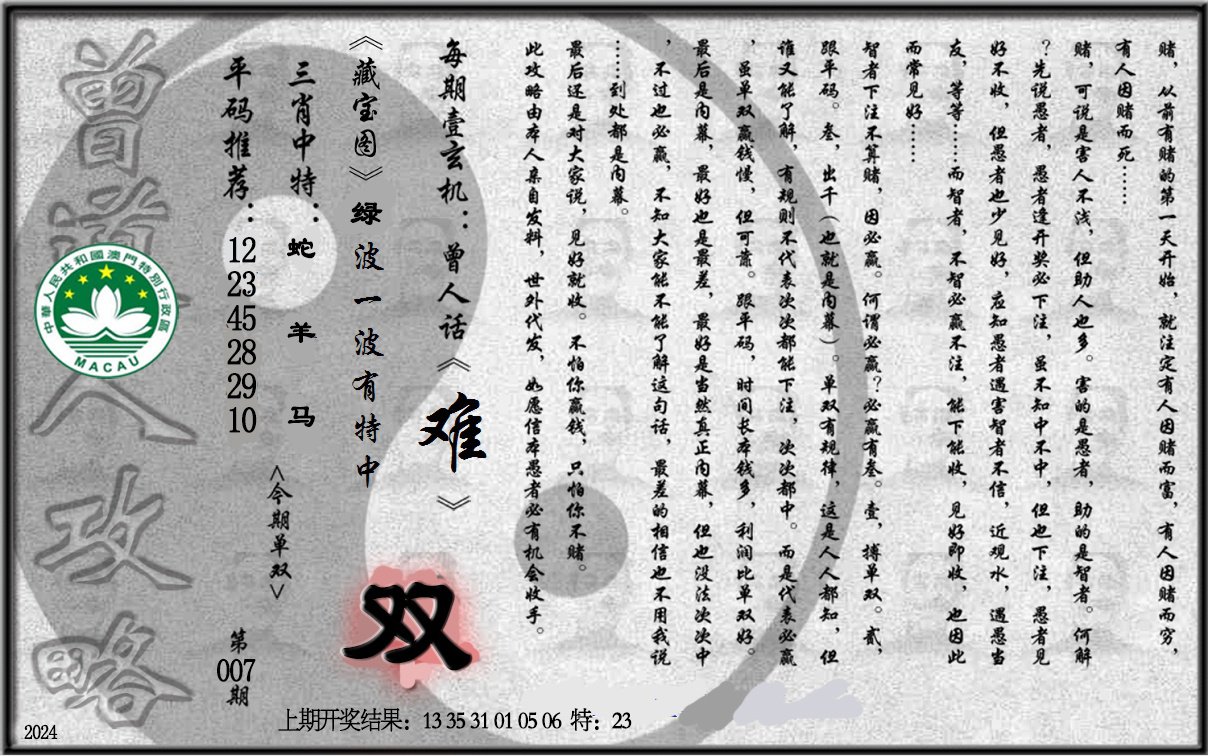 赌，从前有赌的第一天开始，就注定有人因赌而富，有人因赌而穷，
有人因赌而死……
赌，可说是害人不浅，但助人也多。害的是愚者，助的是智者。何解
？先说愚者，愚者逢开奖必下注，虽不知中不中，但也下注，愚者见
好不收，但愚者也少见好，应知愚者遇害智者不信，近观水，遇愚当
友，等等……而智者，不智必赢不注，能下能收，见好即收，也因此
而常见好……
智者下注不算赌，因必赢。何谓必赢？必赢有叁。壹，搏单双。贰，
跟平码。叁，出千（也就是内幕）。单双有规律，这是人人都知，但
谁又能了解，有规则不代表次次都能下注，次次都中。而是代表必赢
，虽单双赢钱慢，但可靠。跟平码，时间长本钱多，利润比单双好。
最后是内幕，最好也是最差，最好是当然真正内幕，但也没法次次中
，不过也必赢，不知大家能不能了解这句话，最差的相信也不用我说
……到处都是内幕。
最后还是对大家说，见好就收。不怕你赢钱，只怕你不赌。
此攻略由本人亲自发料，世外代发，如愿信本愚者必有机会收手。
每期壹玄机：曾人话《难》
《藏宝图》绿波一波有特中
双
三肖中特：蛇 羊 马
<今期单双>
平码推荐：12 23 45 28 29 10
第007期
曾道人攻略
中華人民共和國澳門特別行政區
MACAU
2024
上期开奖结果：13 35 31 01 05 06 特：23